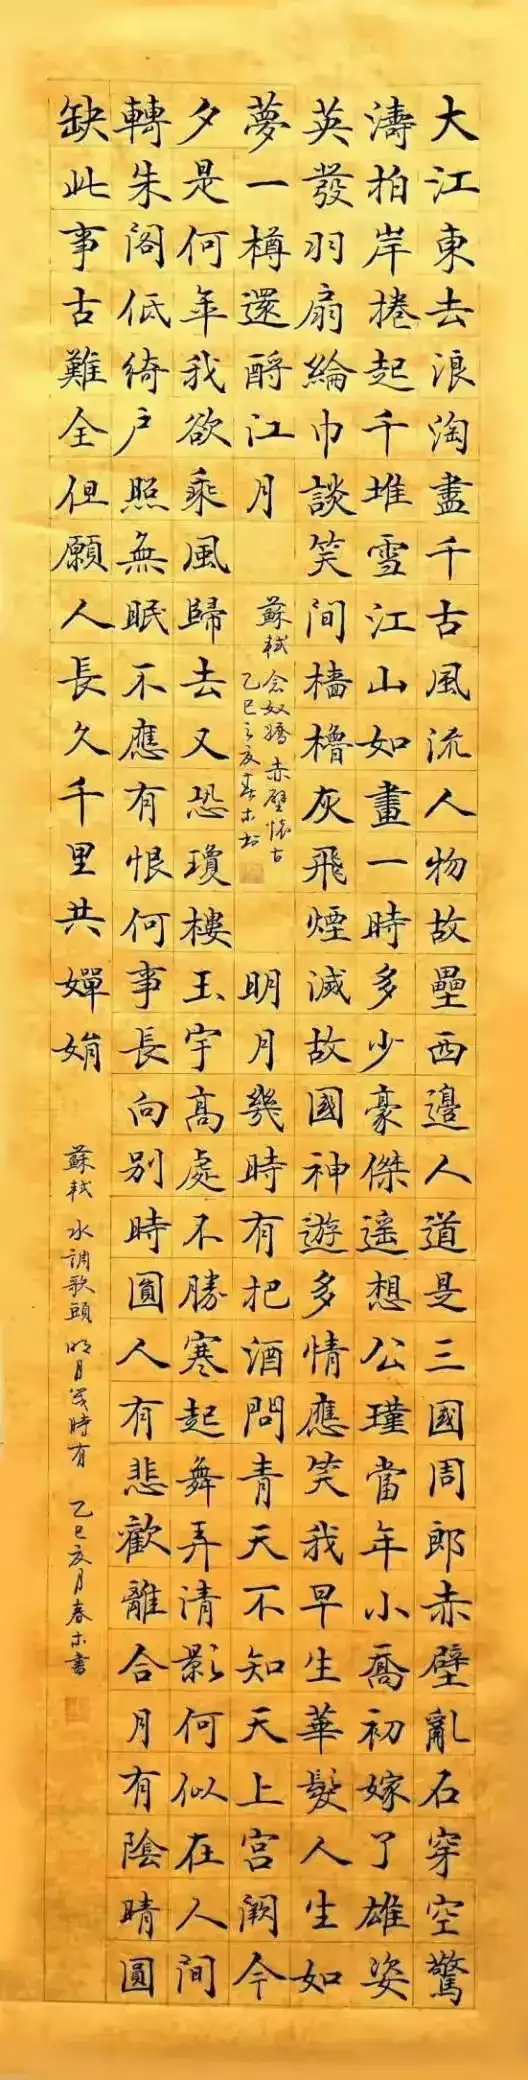 大江東去浪淘盡千古風流人物故壘西邊人道是三國周郎赤壁亂石穿空驚
濤拍岸捲起千堆雪江山如畫一時多少豪傑遙想公瑾當年小喬初嫁了雄姿
英發羽扇綸巾談笑間檣櫓灰飛煙滅故國神遊多情應笑我早生華髮人生如
夢一樽還酹江月
蘇軾 念奴嬌 赤壁懷古
乙巳之亥春木書
明月幾時有把酒問青天不知天上宮闕今
夕是何年我欲乘風歸去又恐瓊樓玉宇高處不勝寒起舞弄清影何似在人間
轉朱閣低綺戶照無眠不應有恨何事長向別時圓人有悲歡離合月有陰晴圓
缺此事古難全但願人長久千里共嬋娟
蘇軾 水調歌頭 明月幾時有 乙巳亥月春木書